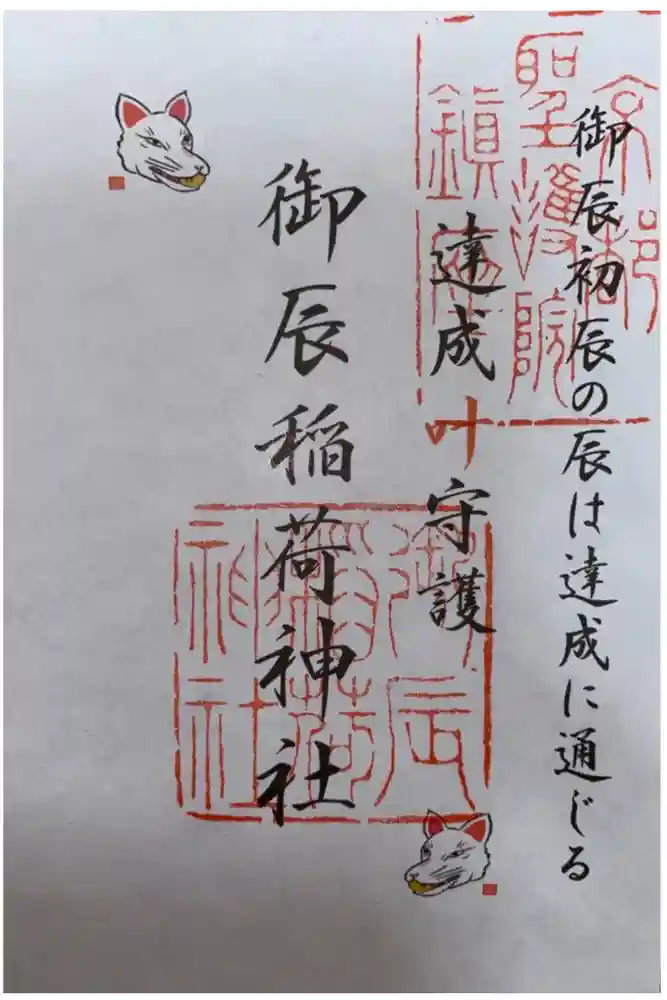 御辰初辰の辰は達成に通じる
達成叶守護
御辰稲荷神社
京都
聖護院
鎮
御辰
稲荷
神社